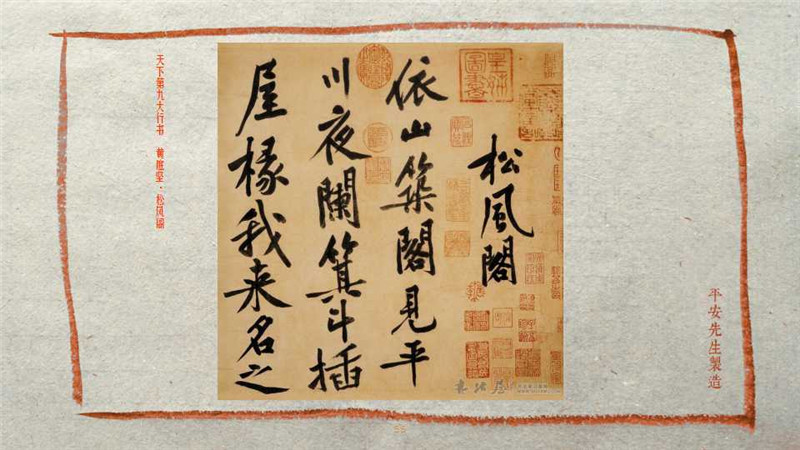 平安先生製造
松風閣
皇姊圖書
依山築閣見平
川夜闌箕斗插
屋椽我来名之
天下第九大行书 黄庭坚·松风阁